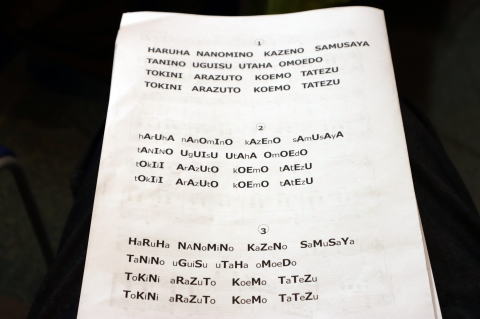 1
HARUHA NANOMINO KAZENO SAMUSAYA
TANINO UGUISU UTAHA OMOEDO
TOKINI ARAZUTO KOEMO TATEZU
TOKINI ARAZUTO KOEMO TATEZU
2
hArUhA nAnOmInO kAzEnO sAmUsAyA
tANINO UgUISU UtAhA OmOEdO
tOkInI ArAzUtO kOEmO tAtEzU
tOkInI ArAzUtO kOEmO tAtEzU
3
HaRuHa NANoMiNo KaZeNo SaMuSaYa
TaNiNo uGuiSu uTaHa oMoeDo
ToKiNi aRaZuTo KoeMo TaTeZu
ToKiNi aRaZuTo KoeMo TaTeZu